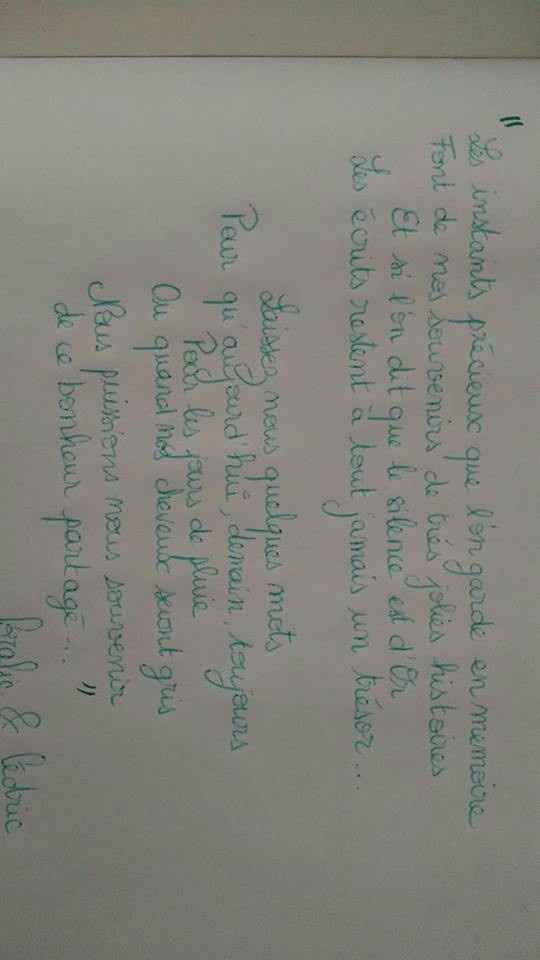 " Les instants précieux que l'on garde en memoire
Font de nos souvenirs de très jolies histoires
Et si l'on dit que le silence est d'Or
Les écrits restent à tout jamais un trésor...
Laissez nous quelques mots
Pour qu'aujourd'hui, demain, toujours
Pour les jours de pluie
Ou quand nos cheveux seront gris
Nous puissions nous souvenir
de ce bonheur partagé... "
& Cédric